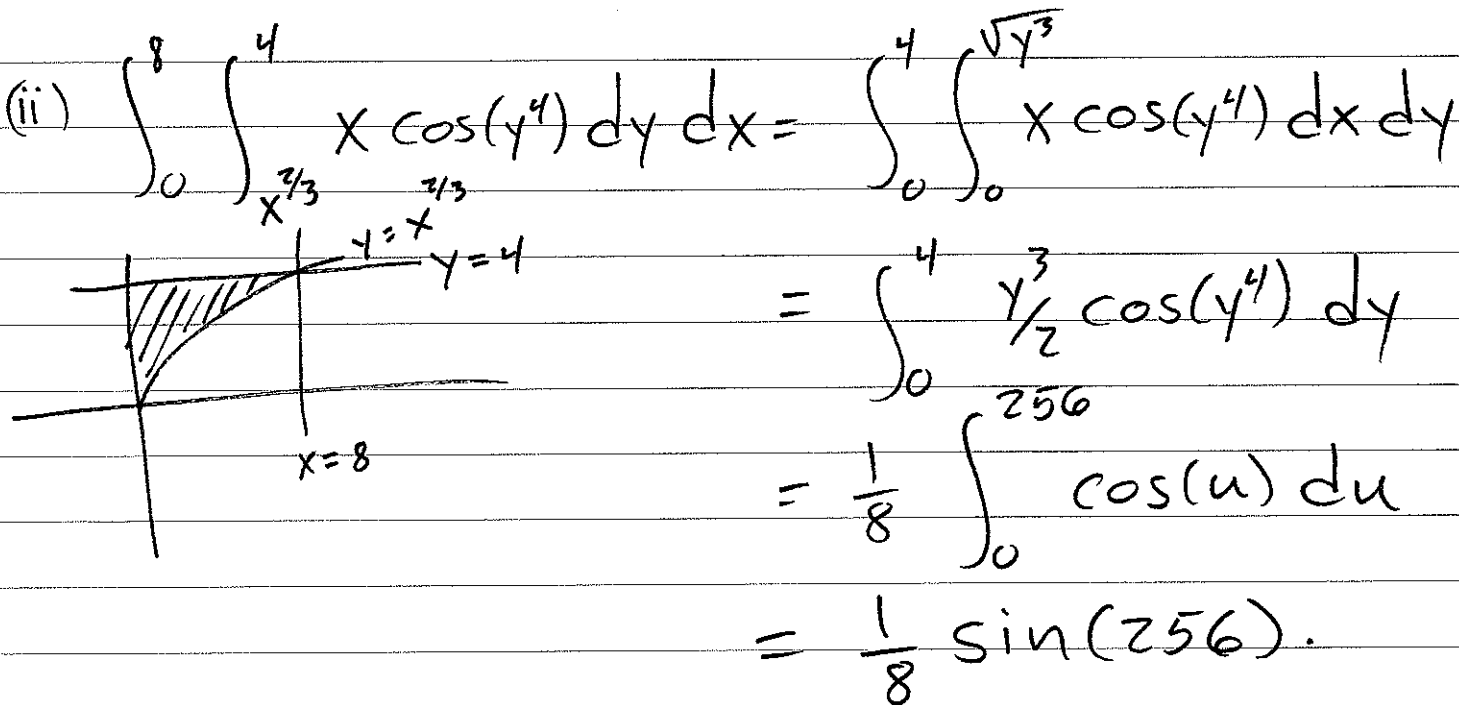 (ii) ∫₀⁸ ∫_{x^{2/3}}^4 x cos(y⁴) dy dx = ∫₀⁴ ∫₀^{√y³} x cos(y⁴) dx dy
y = x^{2/3}
y = 4
x = 8
= ∫₀⁴ y³/2 cos(y⁴) dy
= 1/8 ∫₀^{256} cos(u) du
= 1/8 sin(256).